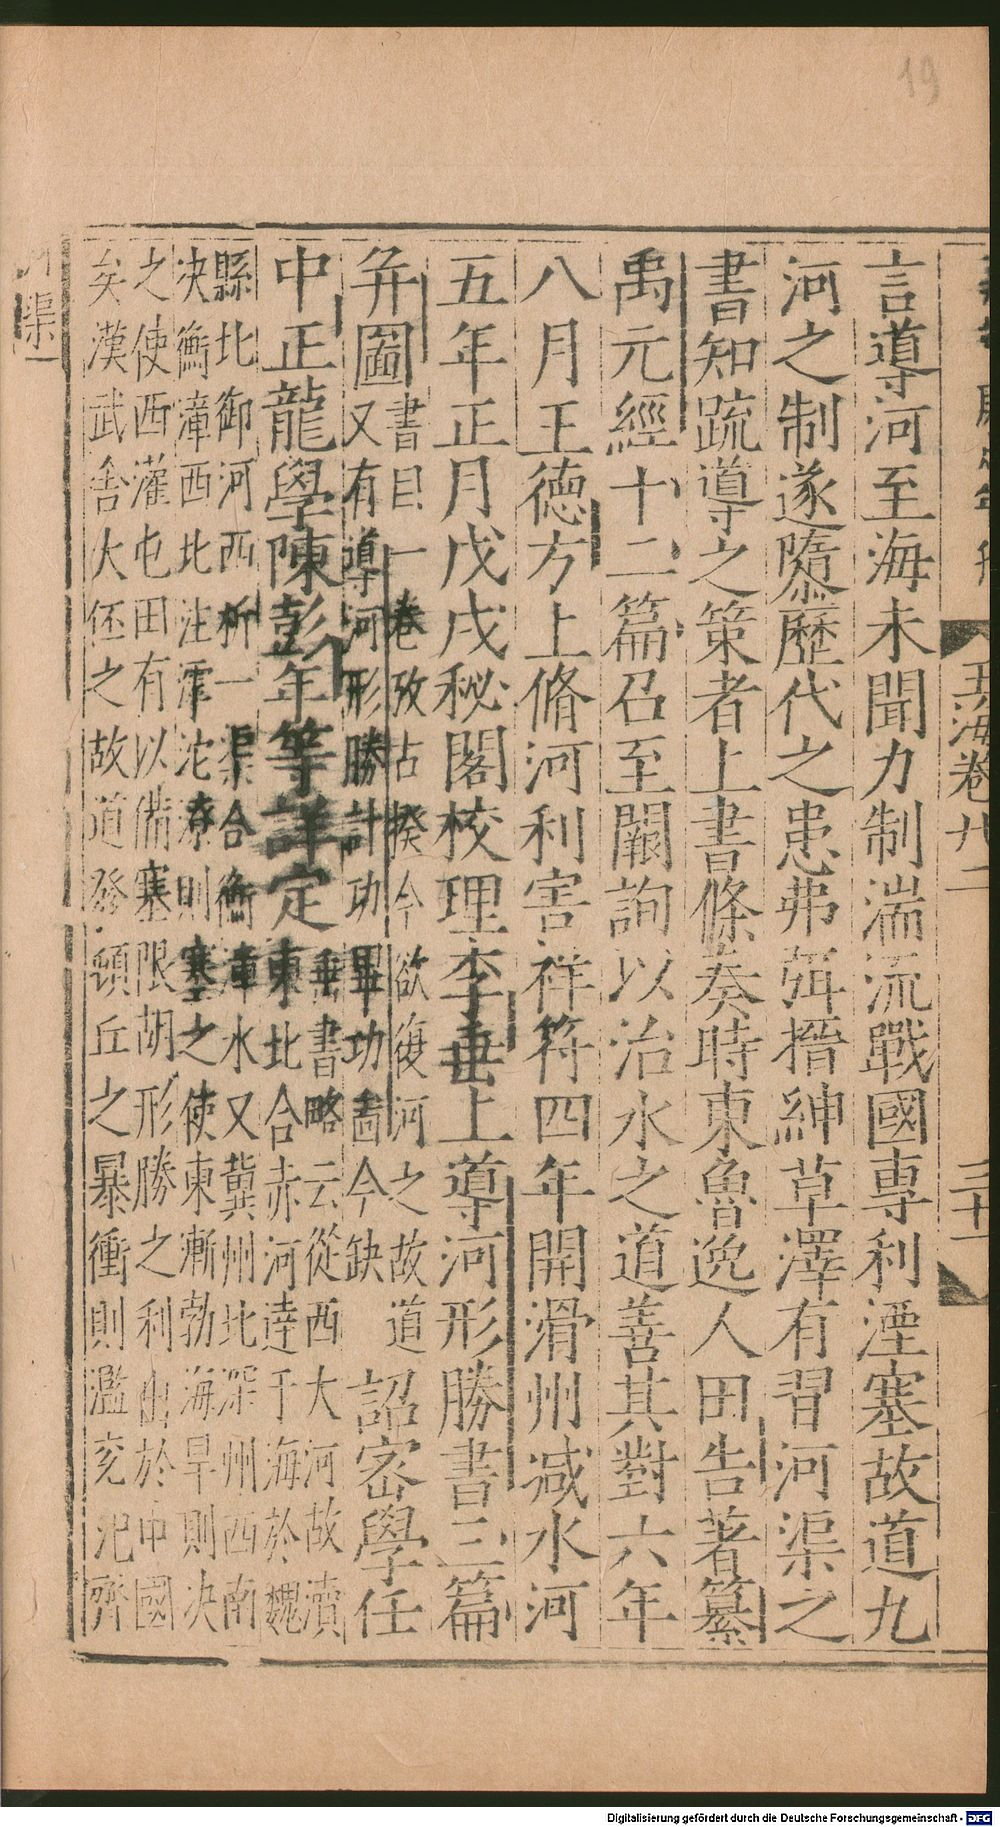 19
玉海卷廿二
三十一
言導河至海未聞力制湍流戰國専利湮塞故道九
河之制遂隳歷代之患弗弭搢紳草澤有習河渠之
書知疏導之策者上書條奏時東魯逸人田告著纂
禹元經十二篇召至闕詢以治水之道善其對六年
八月王德方上脩河利害祥符四年開滑州减水河
五年正月戊戌秘閣校理李垂上導河形勝書三篇
并圖
書目一卷攷古揆今欲復河之故道
又有導河形勝計功畢功啚今缺
詔宻學任
中正龍學陳彭年等詳定
垂書略云從西大河故瀆
東北合赤河達于海於魏
縣北御河西析一渠合衡漳水又冀州北深州西南
决衡漳西北注滹沱潦則塞之使東漸勃海旱則决
之使西灌屯田有以備塞限胡形勝之利出於中國
矣漢武舍大伾之故道發頓丘之暴衝則濫兖汜齊
河渠一
Digitalisierung gefördert durch die Deutsche Forschungsgemeinschaft - DFG